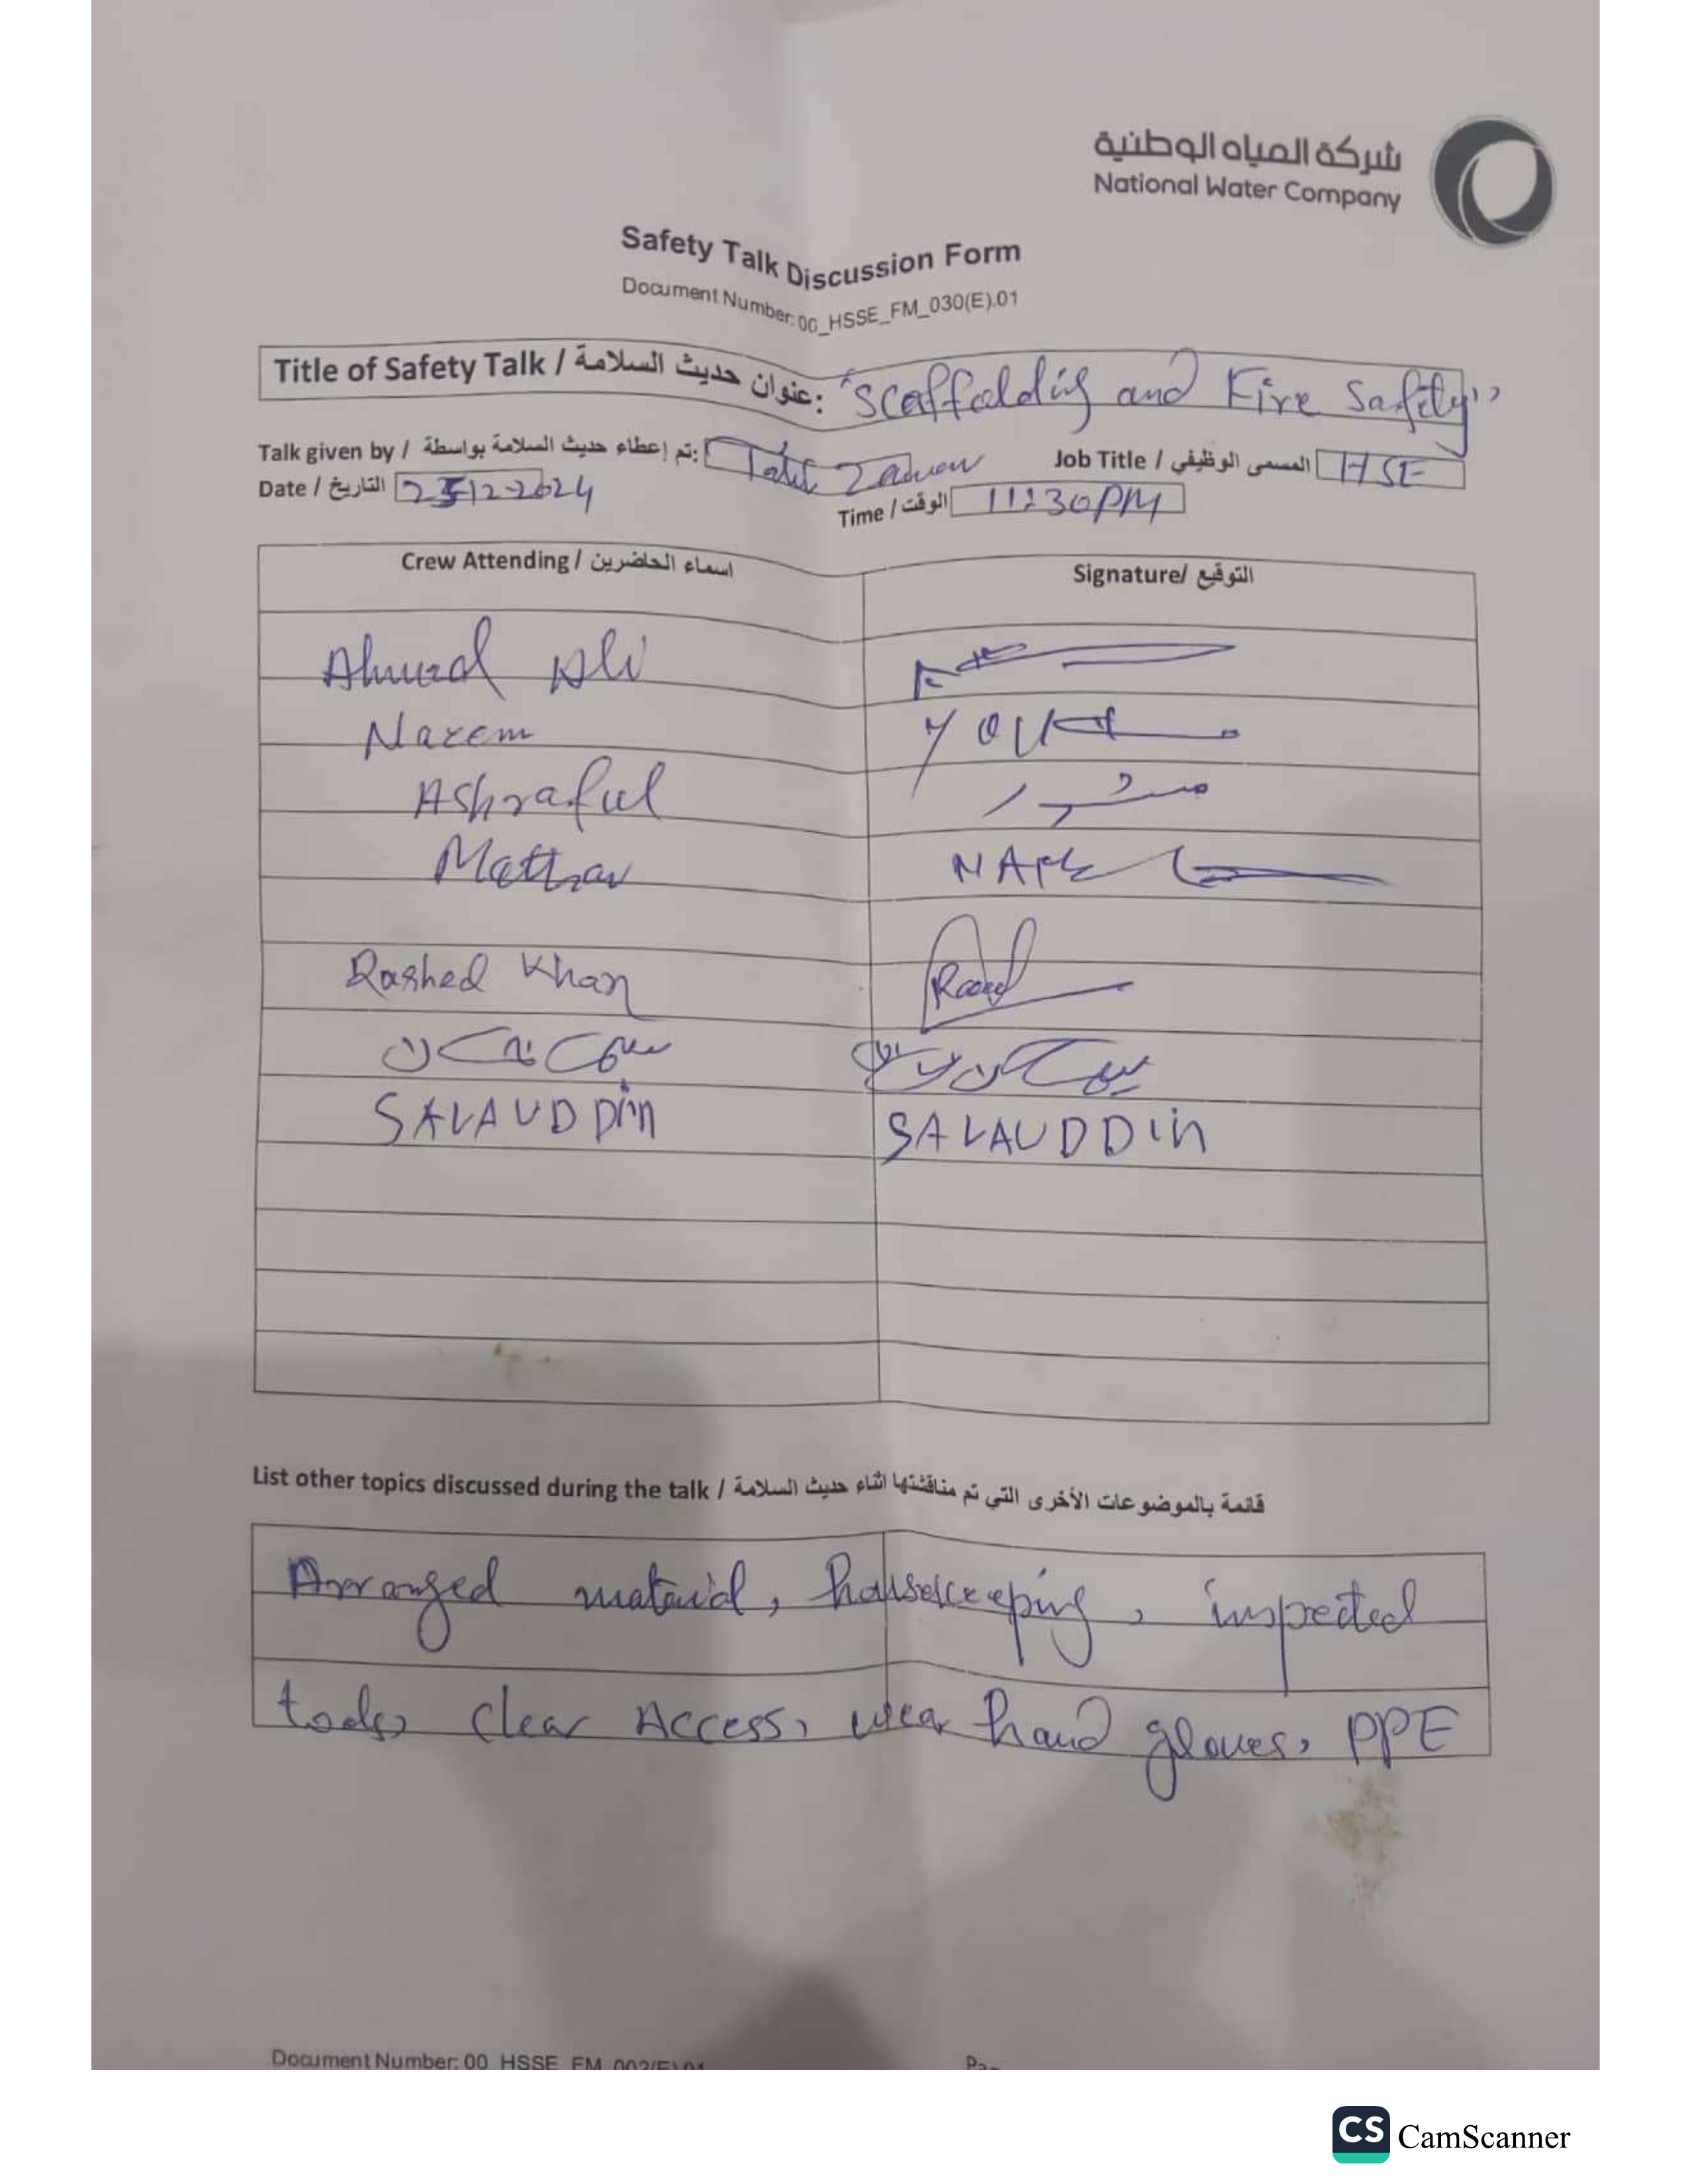 شركة المياه الوطنية
National Water Company
Safety Talk Discussion Form
Document Number: 00_HSSE_FM_030(E).01
Title of Safety Talk / عنوان حديث السلامة: "Scaffolding and Fire Safity"
Talk given by / تم إعطاء حديث السلامة بواسطة: Zaman Job Title / المسمى الوظيفي HSE
Date / التاريخ -12-2024 Time / الوقت 11:30PM
Crew Attending / اسماء الحاضرين Signature/ التوقيع
Ahmad Ali
Nazem
Ashraful
Mathar
Rashed Khan
SALAUDDin SALAUDDin
List other topics discussed during the talk / قائمة بالموضوعات الأخرى التي تم مناقشتها اثناء حديث السلامة
Arranged matarial, housekeeping, inspected
tools, clear Access, wear hand gloves, PPE
Document Number: 00_HSSE_FM_002(E).01
CS CamScanner